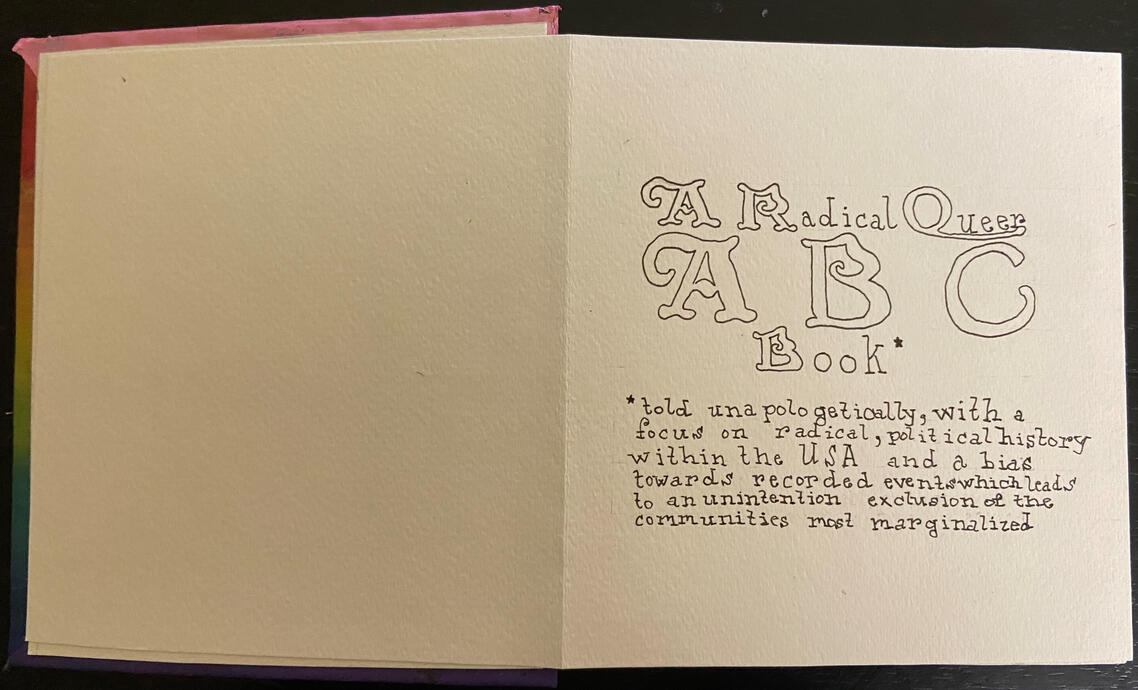 A Radical Queer
A B C
Book*
*told unapologetically, with a
focus on radical, political history
within the USA and a bias
towards recorded events which leads
to an unintention exclusion of the
communities most marginalized